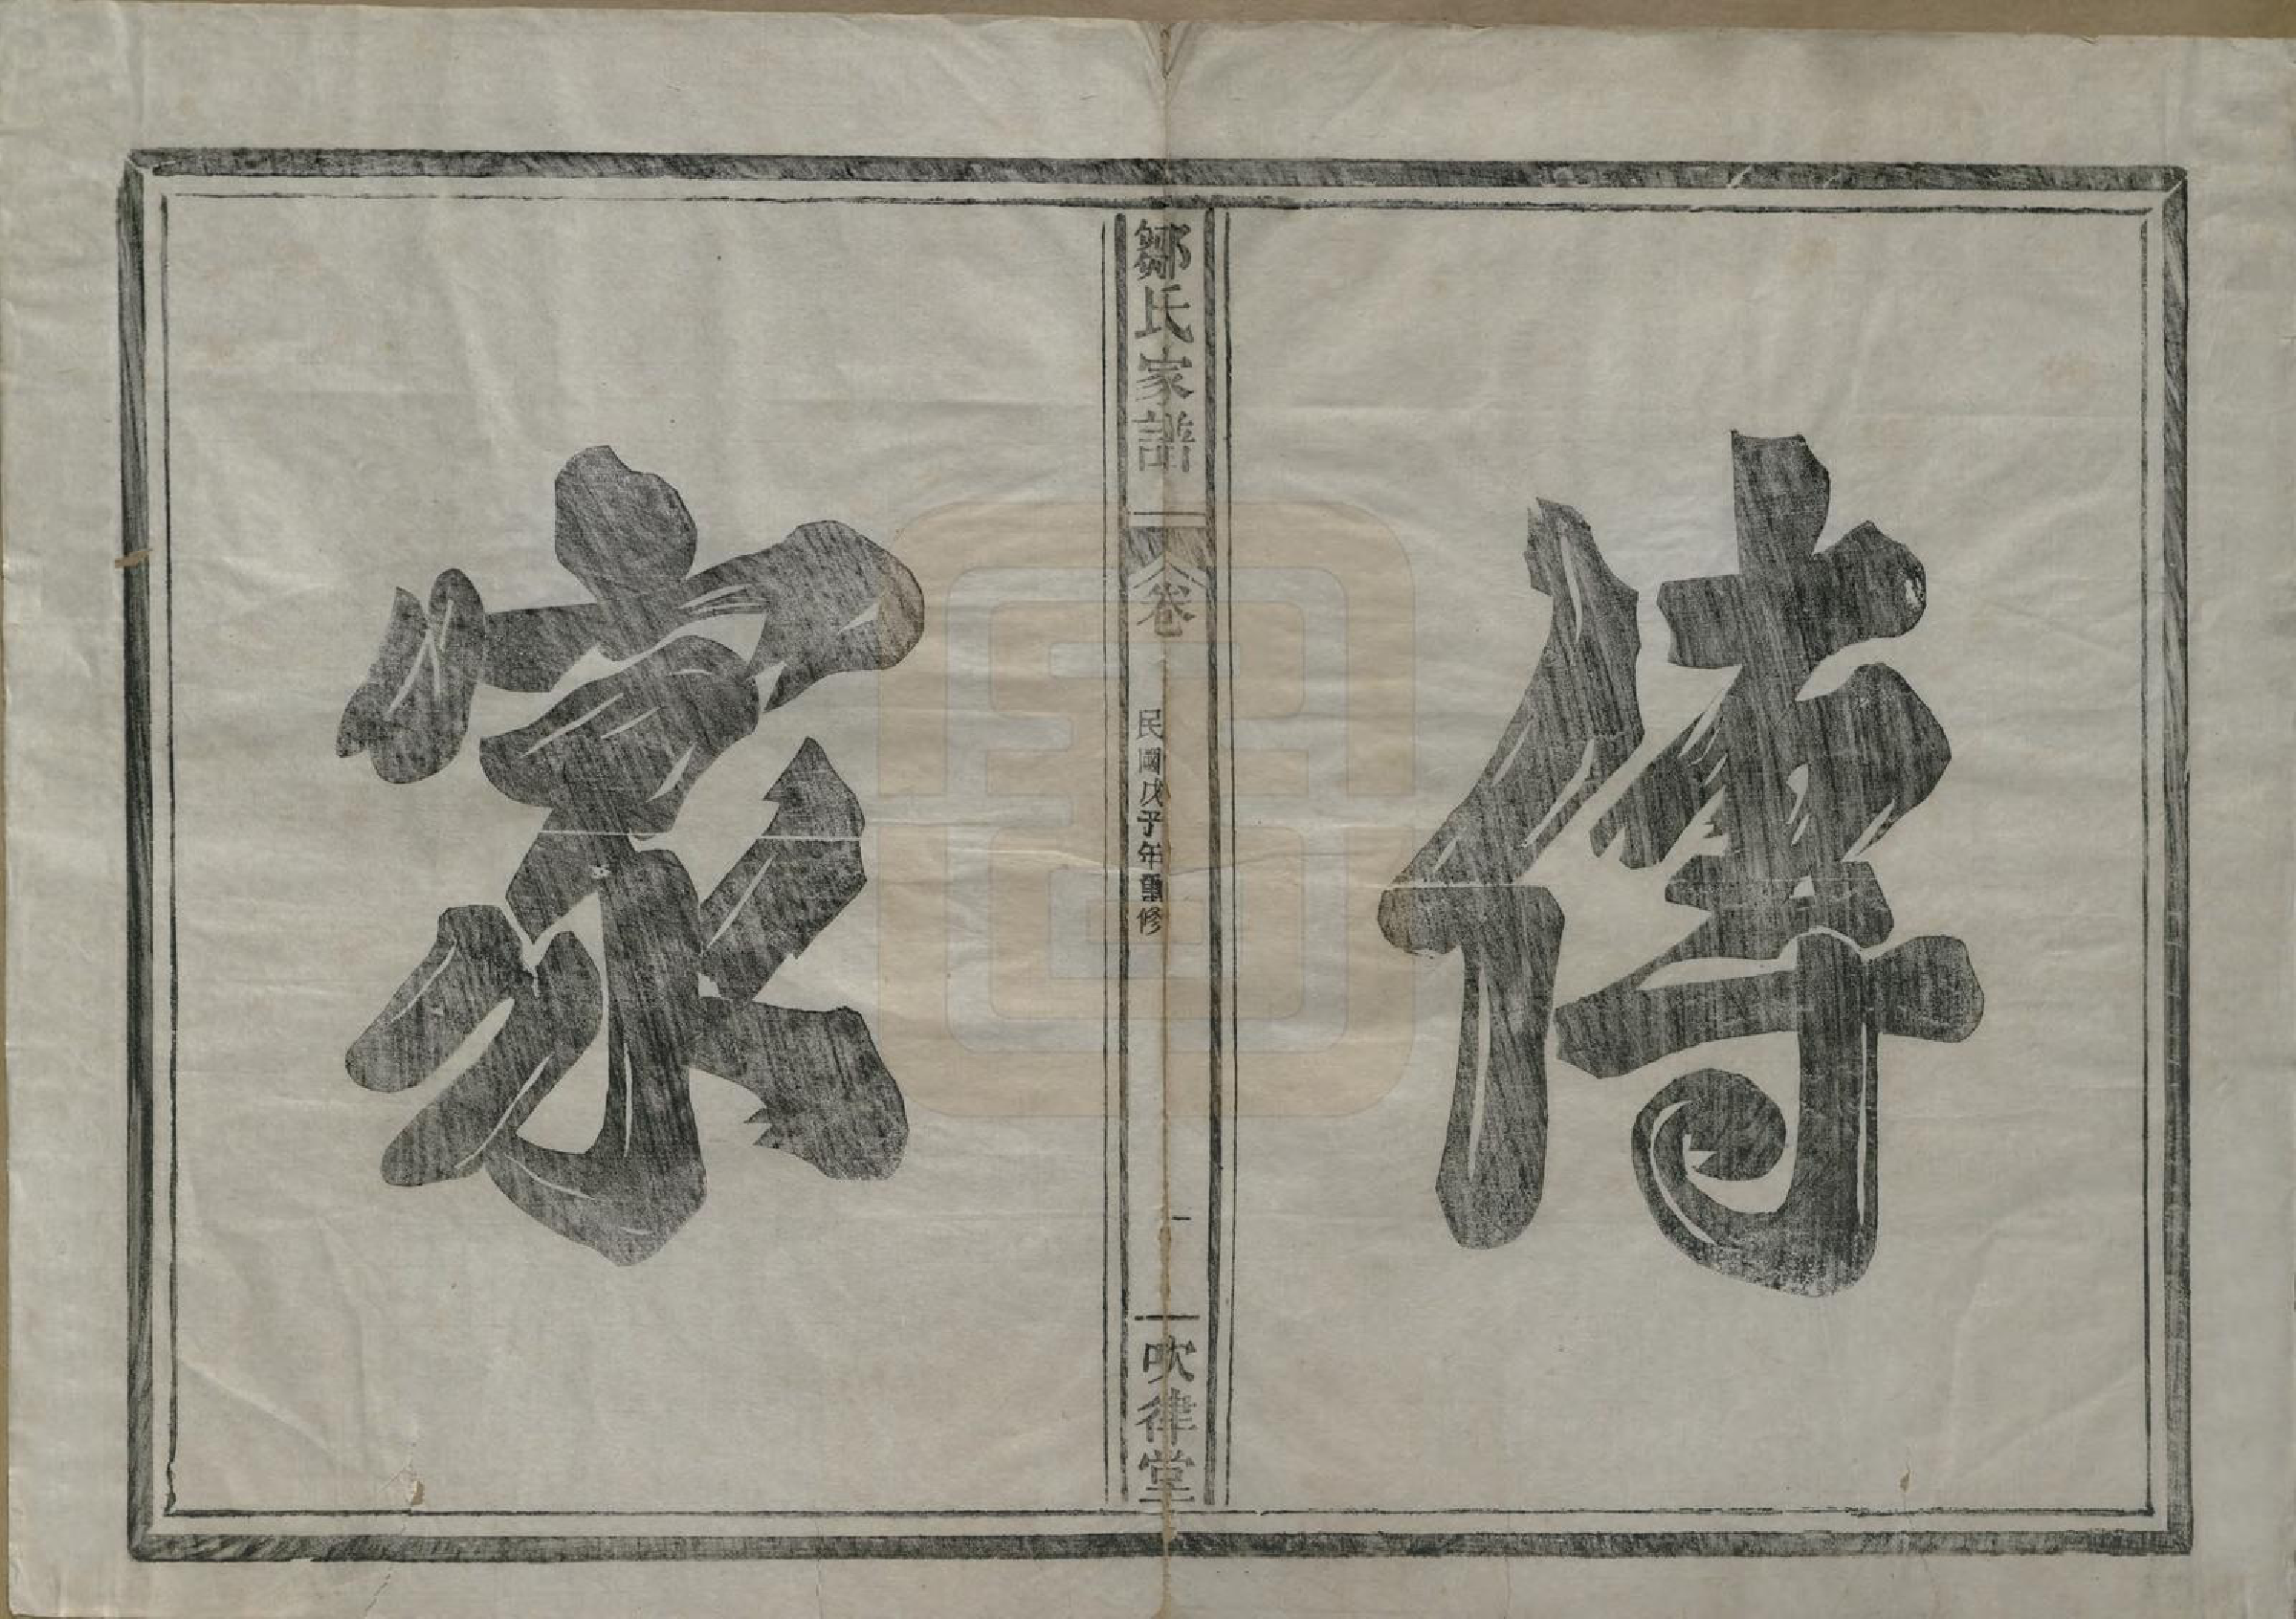 傳
鄒氏家譜
卷
民國戊子年重修
一
吹律堂
家